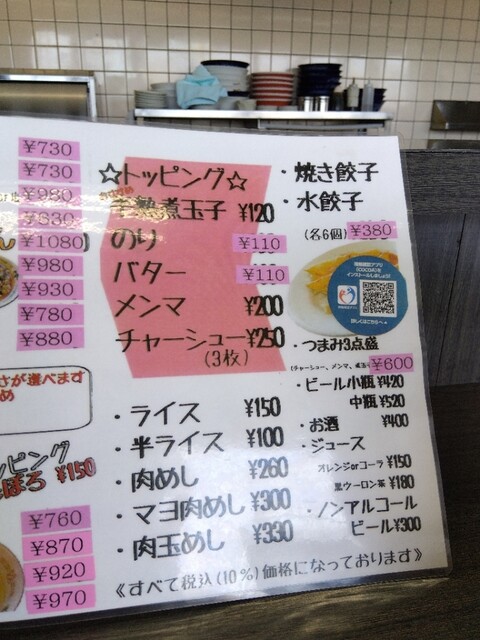 ¥730
¥730
¥980
¥1080)
¥980
¥930
¥780
¥880
さが選べます
め
ッピング
ぼろ ¥150
¥760
¥870
¥920
¥970
☆トッピング☆
半熟煮玉子 ¥120
のり ¥110
バター ¥110
メンマ ¥200
チャーシュー ¥250
(3枚)
・ライス ¥150
・半ライス ¥100
・肉めし ¥260
・マヨ肉めし ¥300
・肉玉めし ¥330
・焼き餃子
・水餃子
(各6個) ¥380
インストールしましょう!
詳しくはこちらへ
・つまみ3点盛
(チャーシュー、メンマ、
¥600
・ビール小瓶 ¥420
中瓶 ¥520
・お酒 ¥400
・ジュース
オレンジorコーラ ¥150
黒ウーロン茶 ¥180
・ノンアルコール
ビール ¥300
《すべて税込(10%)価格になっております》